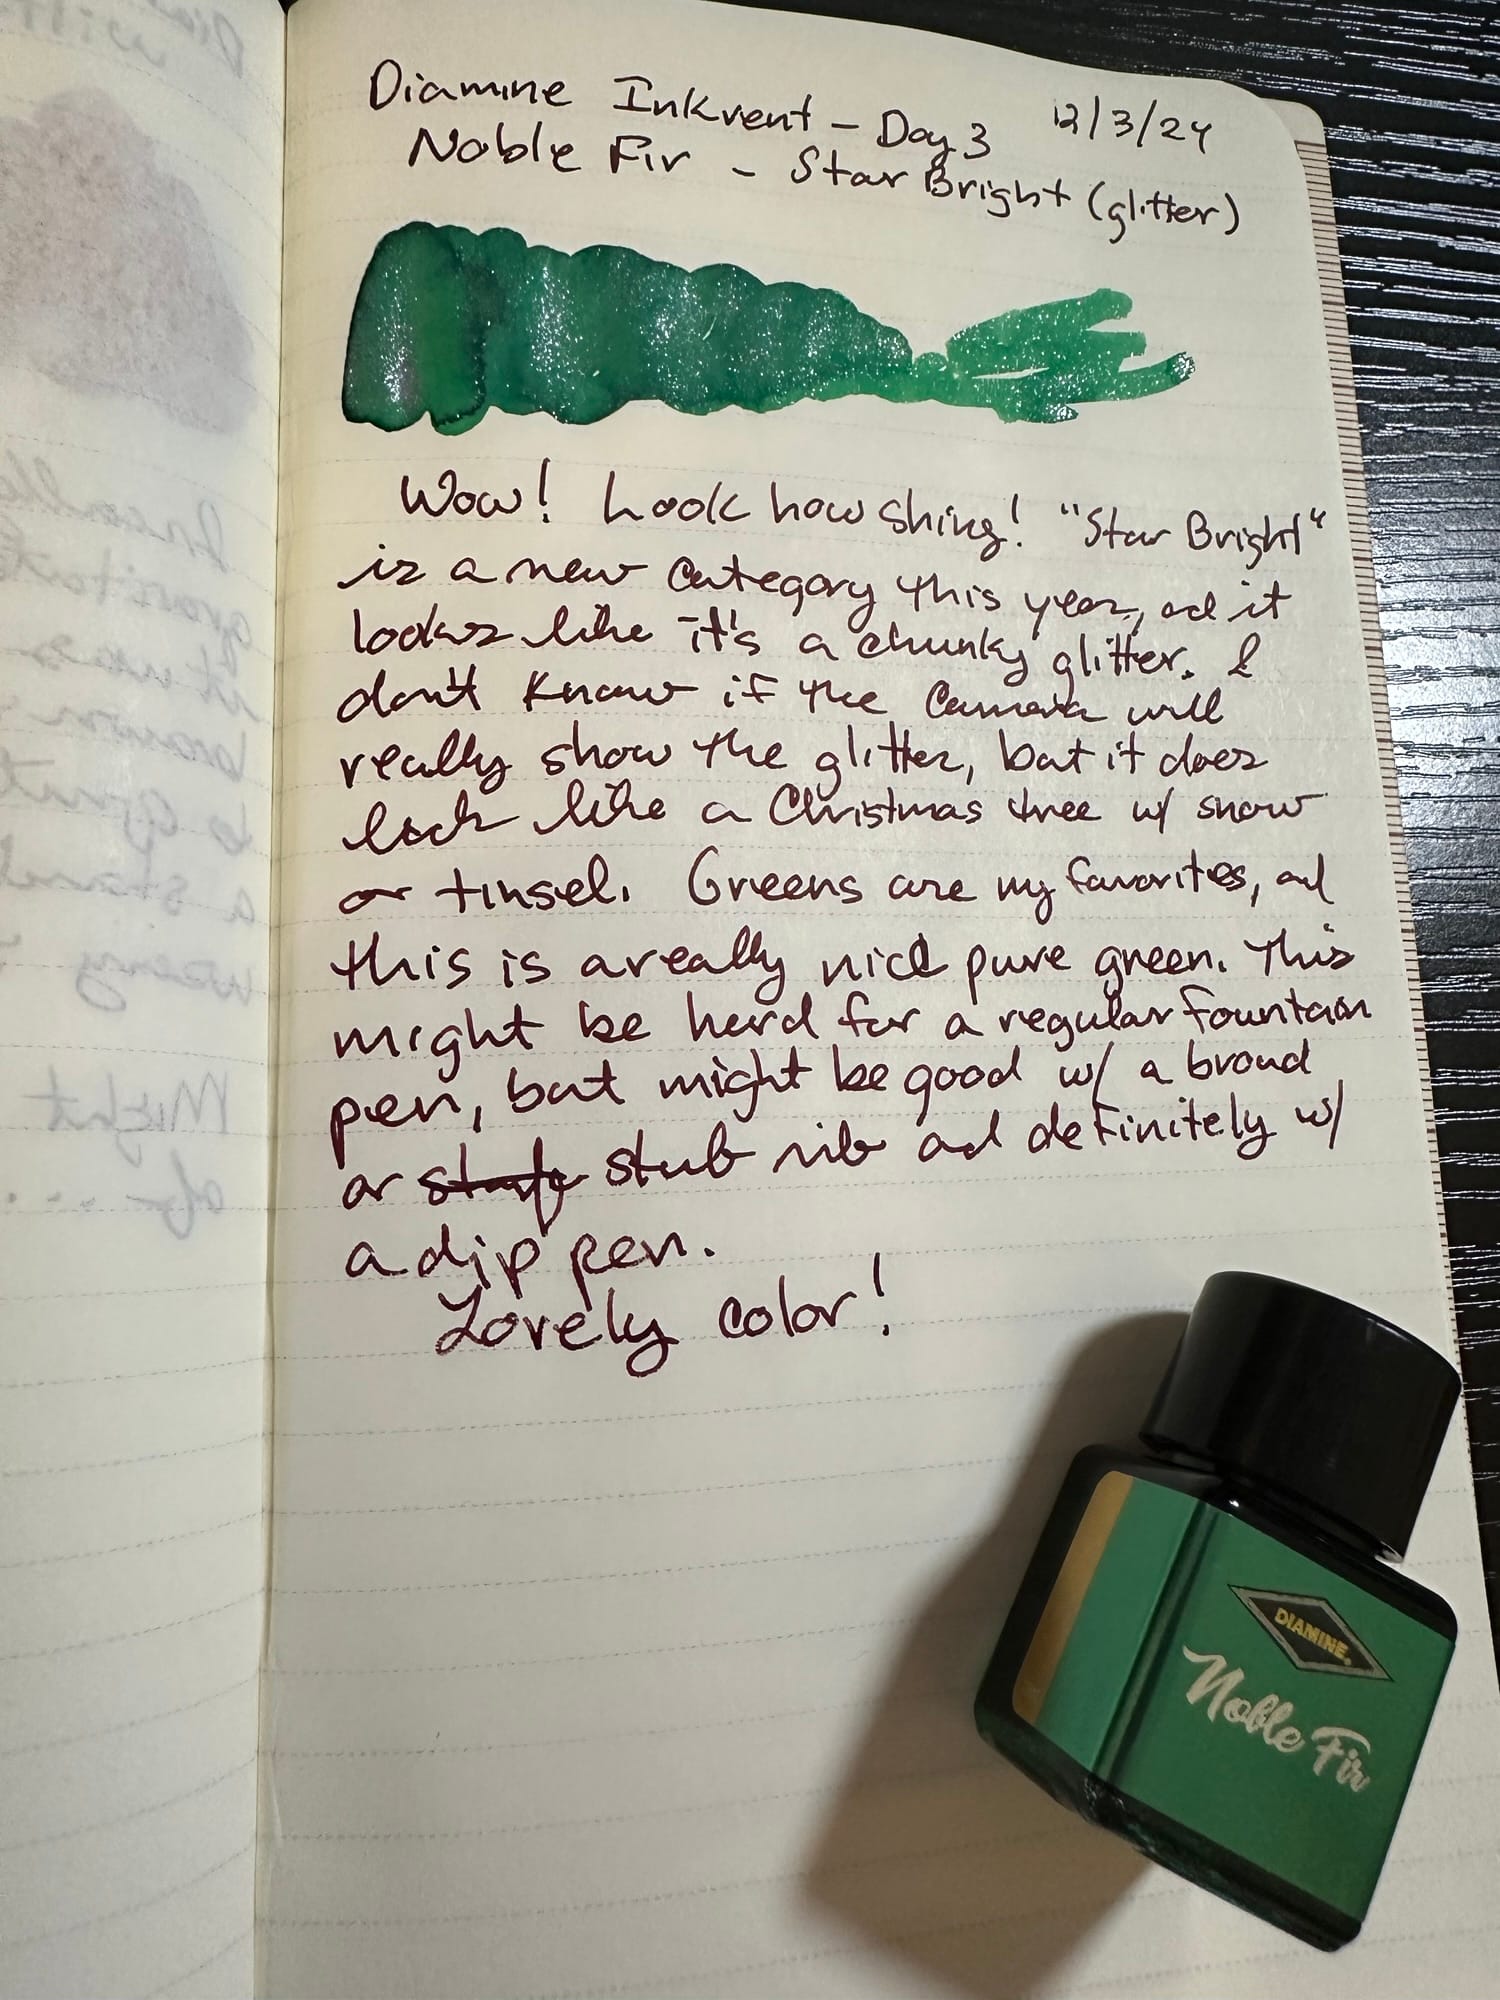 Diamine Inkvent - Day 3 12/3/24
Noble Fir - Star Bright (glitter)
Wow! Look how shiny! "Star Bright"
is a new category this year, ad it
looks like it's a chunky glitter. I
don't know if the camera will
really show the glitter, but it does
look like a Christmas tree w/ snow
or tinsel. Greens are my favorites, ad
this is a really nice pure green. This
might be hard for a regular fountain
pen, but might be good w/ a broad
or stub nib ad definitely w/
a dip pen.
Lovely color!
DIAMINE
Noble Fir
Might